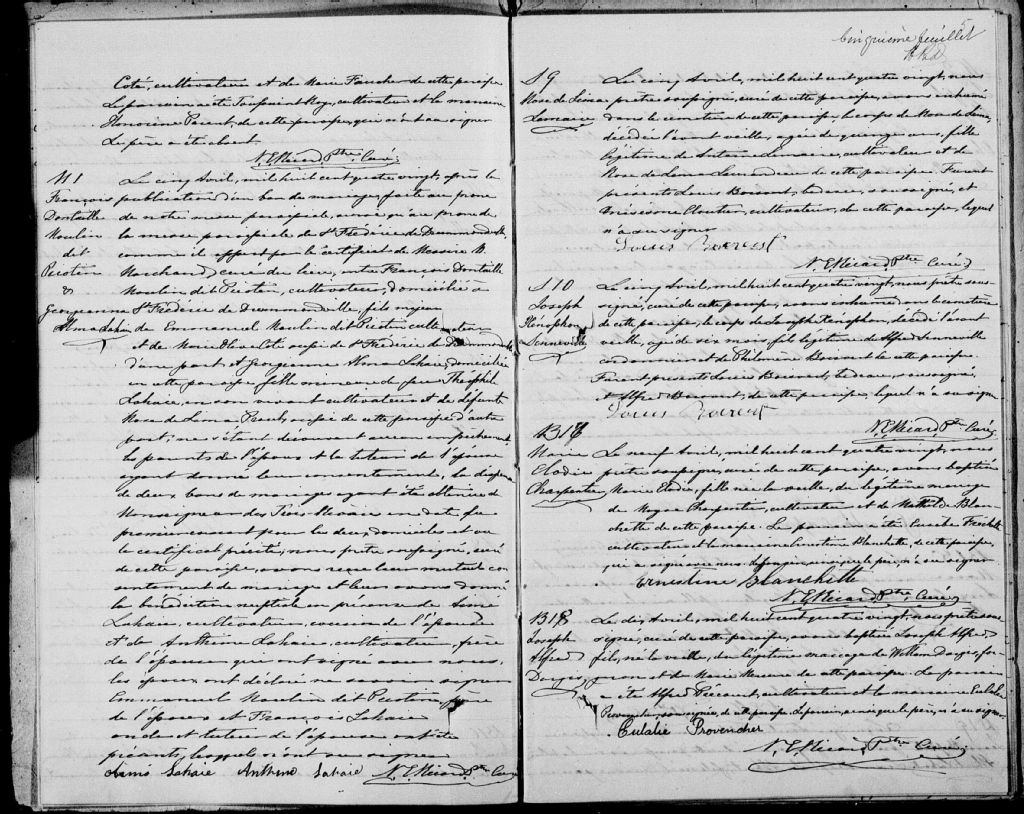 Coté, cultivateur et de Marie Faucher de cette paroisse
Le parrain a été Toussaint Roy, cultivateur et la marraine
Honorine Parent, de cette paroisse, qui n'ont su signer
Le père a été absent.
N. E. Ricard, Ptre Curé.
M 1
François
Dontaille
Moulin
dit
Picotin
&
Georgianna
Alma Lahaie
Le cinq Avril, mil huit cent quatre vingt, après la
publication d'un ban de mariage, faite au prône
de notre messe paroissiale, ainsi qu'au prône de
la messe paroissiale de St Frédéric de Drummondville
comme il appert par le certificat de Messire
Marchand, curé du lieu, entre François Dontaille
Moulin dit Picotin, cultivateur, domicilié à
St Frédéric de Drummondville, fils majeur
de Emmanuel Moulin dit Picotin cultivateur
et de Marie Coté aussi de St Frédéric de Drummondville
d'une part, et Georgianna Alma Lahaie, domiciliée
en cette paroisse, fille mineure de feu Théophile
Lahaie, en son vivant cultivateur et de défunte
Rose de Lima aussi de cette paroisse d'autre
part; ne s'étant découvert aucun empêchement
les parents de l'époux et le tuteur de l'épouse
ayant donné leur consentement, la dispense
de deux bans de mariage ayant été obtenue de
Monseigneur des Trois-Rivières en date du
premier courant pour les deux domiciles
le certificat précité; nous prêtre soussigné, curé
de cette paroisse, avons reçu leur mutuel con-
sentement de mariage et leur avons donné
la bénédiction nuptiale en présence de Aimé
Lahaie, cultivateur, cousin de l'épouse
et de Anthime Lahaie, cultivateur, frère
de l'épouse qui ont signé avec nous.
Les époux ont déclaré ne savoir signer
Emmanuel Moulin dit Picotin père
de l'époux et François Lahaie
oncle et tuteur de l'épouse ont été
présents, lesquels n'ont su signer
Aimé Lahaie Anthime Lahaie N. E. Ricard, Ptre Curé
Cinquième feuillet
5
S 9
Rose de Lima
Lemaire
Le cinq Avril, mil huit cent quatre vingt, nous
prêtre soussigné, curé de cette paroisse, avons inhumé
dans le cimetière de cette paroisse, le corps de Rose de Lima,
décédée l'avant veille, agée de quinze ans, fille
légitime de Antoine Lemaire, cultivateur et de
Rose de Lima de cette paroisse. Furent
présents Louis Boisvert, bedeau, soussigné, et
Onésime Cloutier, cultivateur, de cette paroisse, lequel
n'a su signer
Louis Boisvert
N. E. Ricard, Ptre Curé
S 10
Joseph
Xénophon
Senneville
Le cinq Avril, mil huit cent quatre vingt, nous prêtre sous-
signé, curé de cette paroisse, avons inhumé dans le cimetière
de cette paroisse, le corps de Joseph Xénophon, décédé l'avant
veille, agé de six mois fils légitime de Alfred Senneville
cordonnier et de Philomène Boisvert de cette paroisse.
Furent présents Louis Boisvert, bedeau, soussigné,
et Alfred Boisvert, de cette paroisse, lequel n'a su signer
Louis Boisvert
N. E. Ricard, Ptre Curé
B 17
Marie
Elodie
Charpentier
Le neuf Avril, mil huit cent quatre vingt, nous
prêtre soussigné, curé de cette paroisse, avons baptisé
Marie Elodie, fille née la veille, du légitime mariage
de Moyse Charpentier, cultivateur et de Mathilde Blan-
chette de cette paroisse. Le parrain a été Eusèbe Frechette
cultivateur et la marraine Ernestine Blanchette, de cette paroisse,
qui a signé avec nous. Le parrain, ainsi que le père, n'a su signer.
Ernestine Blanchette
N. E. Ricard, Ptre Curé
B 18
Joseph
Alfred
Dargis
Le dix Avril, mil huit cent quatre vingt, nous prêtre sous-
signé, curé de cette paroisse, avons baptisé Joseph Alfred
fils, né la veille, du légitime mariage de William Dargis, for-
geron et de Marie Mercure de cette paroisse. Le parrain
a été Alfred cultivateur et la marraine Eulalie
Provencher, soussignée, de cette paroisse. Le parrain, ainsi que le père, n'a su signer.
Eulalie Provencher
N. E. Ricard, Ptre Curé